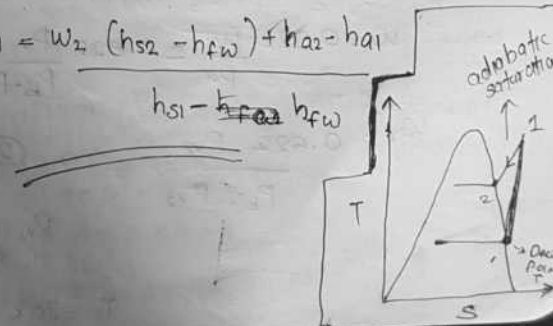 = w₂ (hs2 - hfw) + ha2 - ha1
hs1 - hfw
adiabatic
saturation
1
T
2
T
S